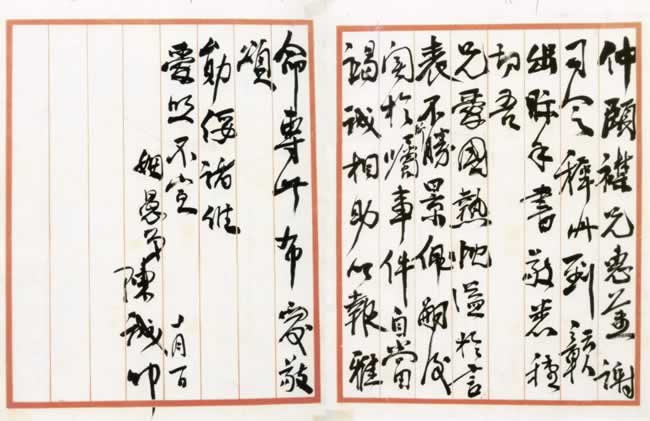 仲頤襟兄惠鑒謝
司令穉舟到贛
出眎手書敬悉種
切吾
兄愛國熱忱溢於言
表不勝景佩嗣後
關於所囑事件自當
竭誠相助以報雅
命專此布覆敬
頌
勛綏諸維
愛照不宣
姻愚弟陳誠叩